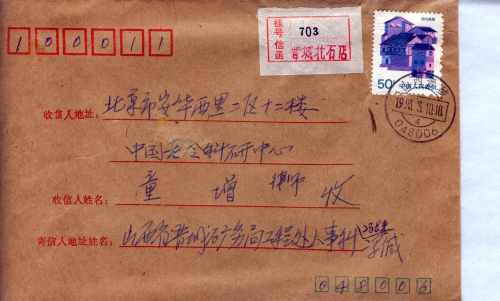 100011
挂号信函
703
晋城北石店
50分
中国人民邮政
1993.3.10.18
4
048006
收信人地址：北京市安华西里二区十二楼
中国老令科研中心
收信人姓名：童增 律师 收
寄信人地址姓名：山西省晋城矿务局工程处人事科
048006